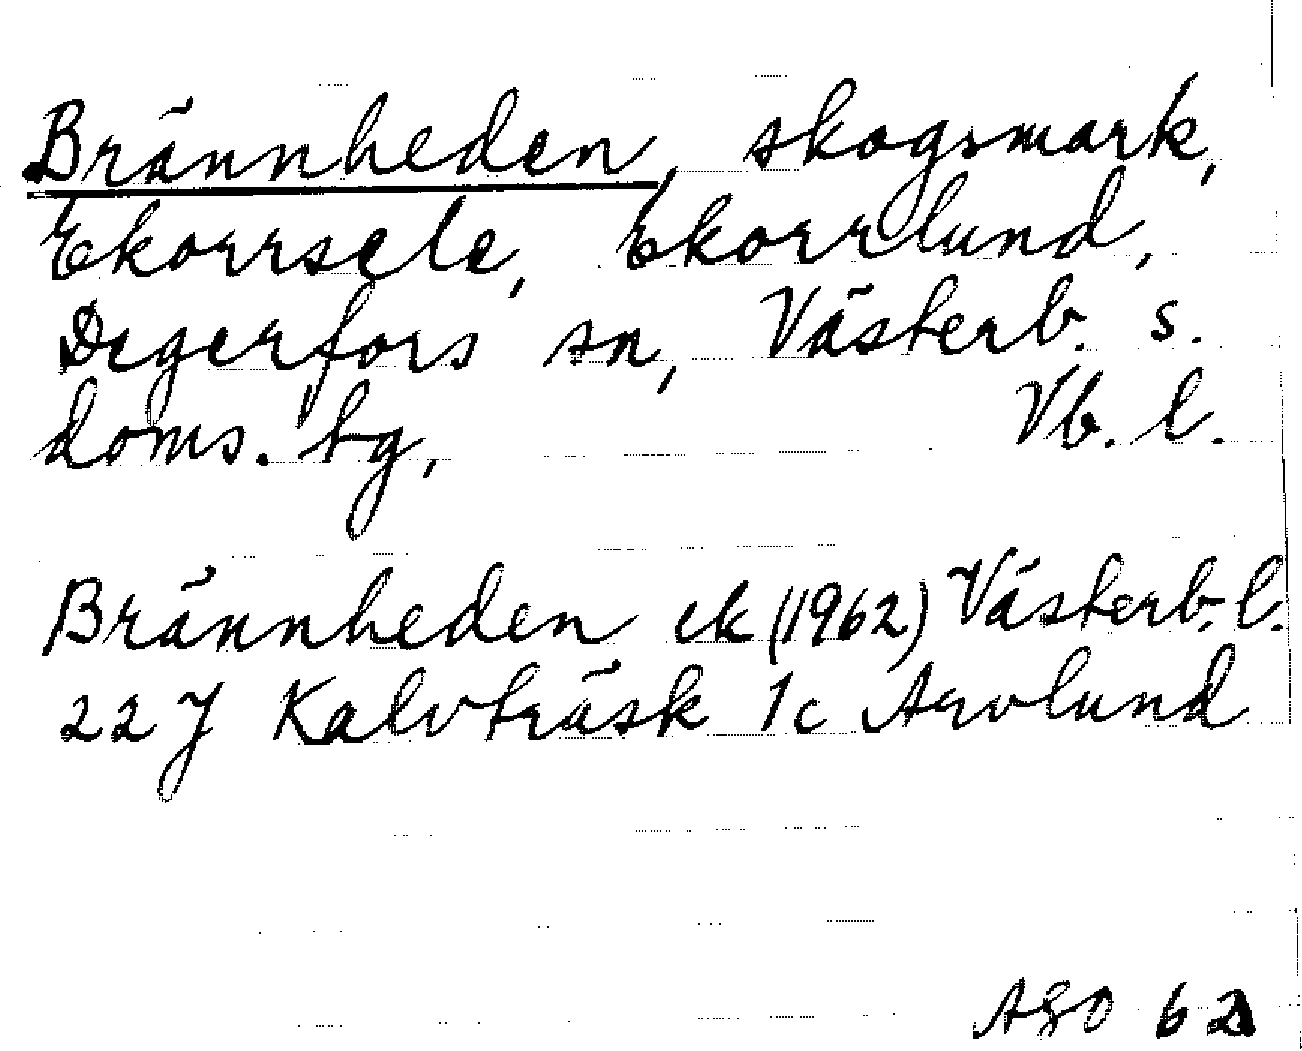 Brännheden, skogsmark,
Ekorrsele, Ekorrlund,
Degerfors sn, Västerb. s.
doms. tg, Vb. l.
Brännheden ek (1962) Västerb. l.
22 J Kalvträsk 1c Arvlund
ASO 62